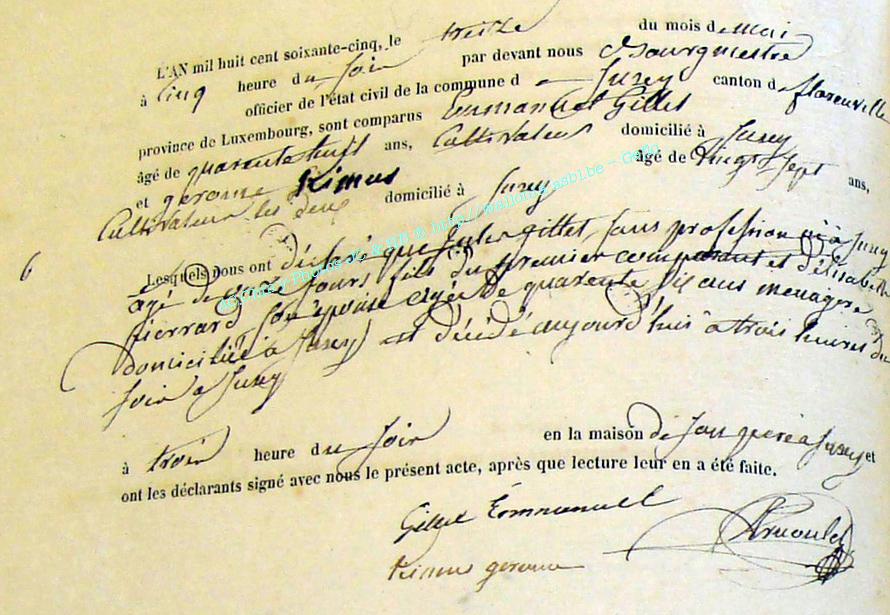 L'AN mil huit cent soixante-cinq, le treize du mois de mai
à cinq heure du soir par devant nous Bourgmestre
officier de l'état civil de la commune d Suxey canton de florenville
province de Luxembourg, sont comparus Emmanuel Gillet
âgé de quarante huit ans, Cultivateur domicilié à Suxey
et gerome Kimus âgé de vingt-sept ans,
Cultivateur les deux domicilié à Suxey
6
Lesquels nous ont déclaré que Jules Gillet, sans profession né à Suxey
âgé de jours fils du premier comparant et d'Elisabeth
Pierrard son épouse agée de quarante ans menagère
domiciliée à Suxey est décédé aujourd'hui à trois heures du
soir à Suxey
à trois heure du soir en la maison de son père à Suxey et
ont les déclarants signé avec nous le présent acte, après que lecture leur en a été faite.
Gillet Emmanuel
Kimus gerome